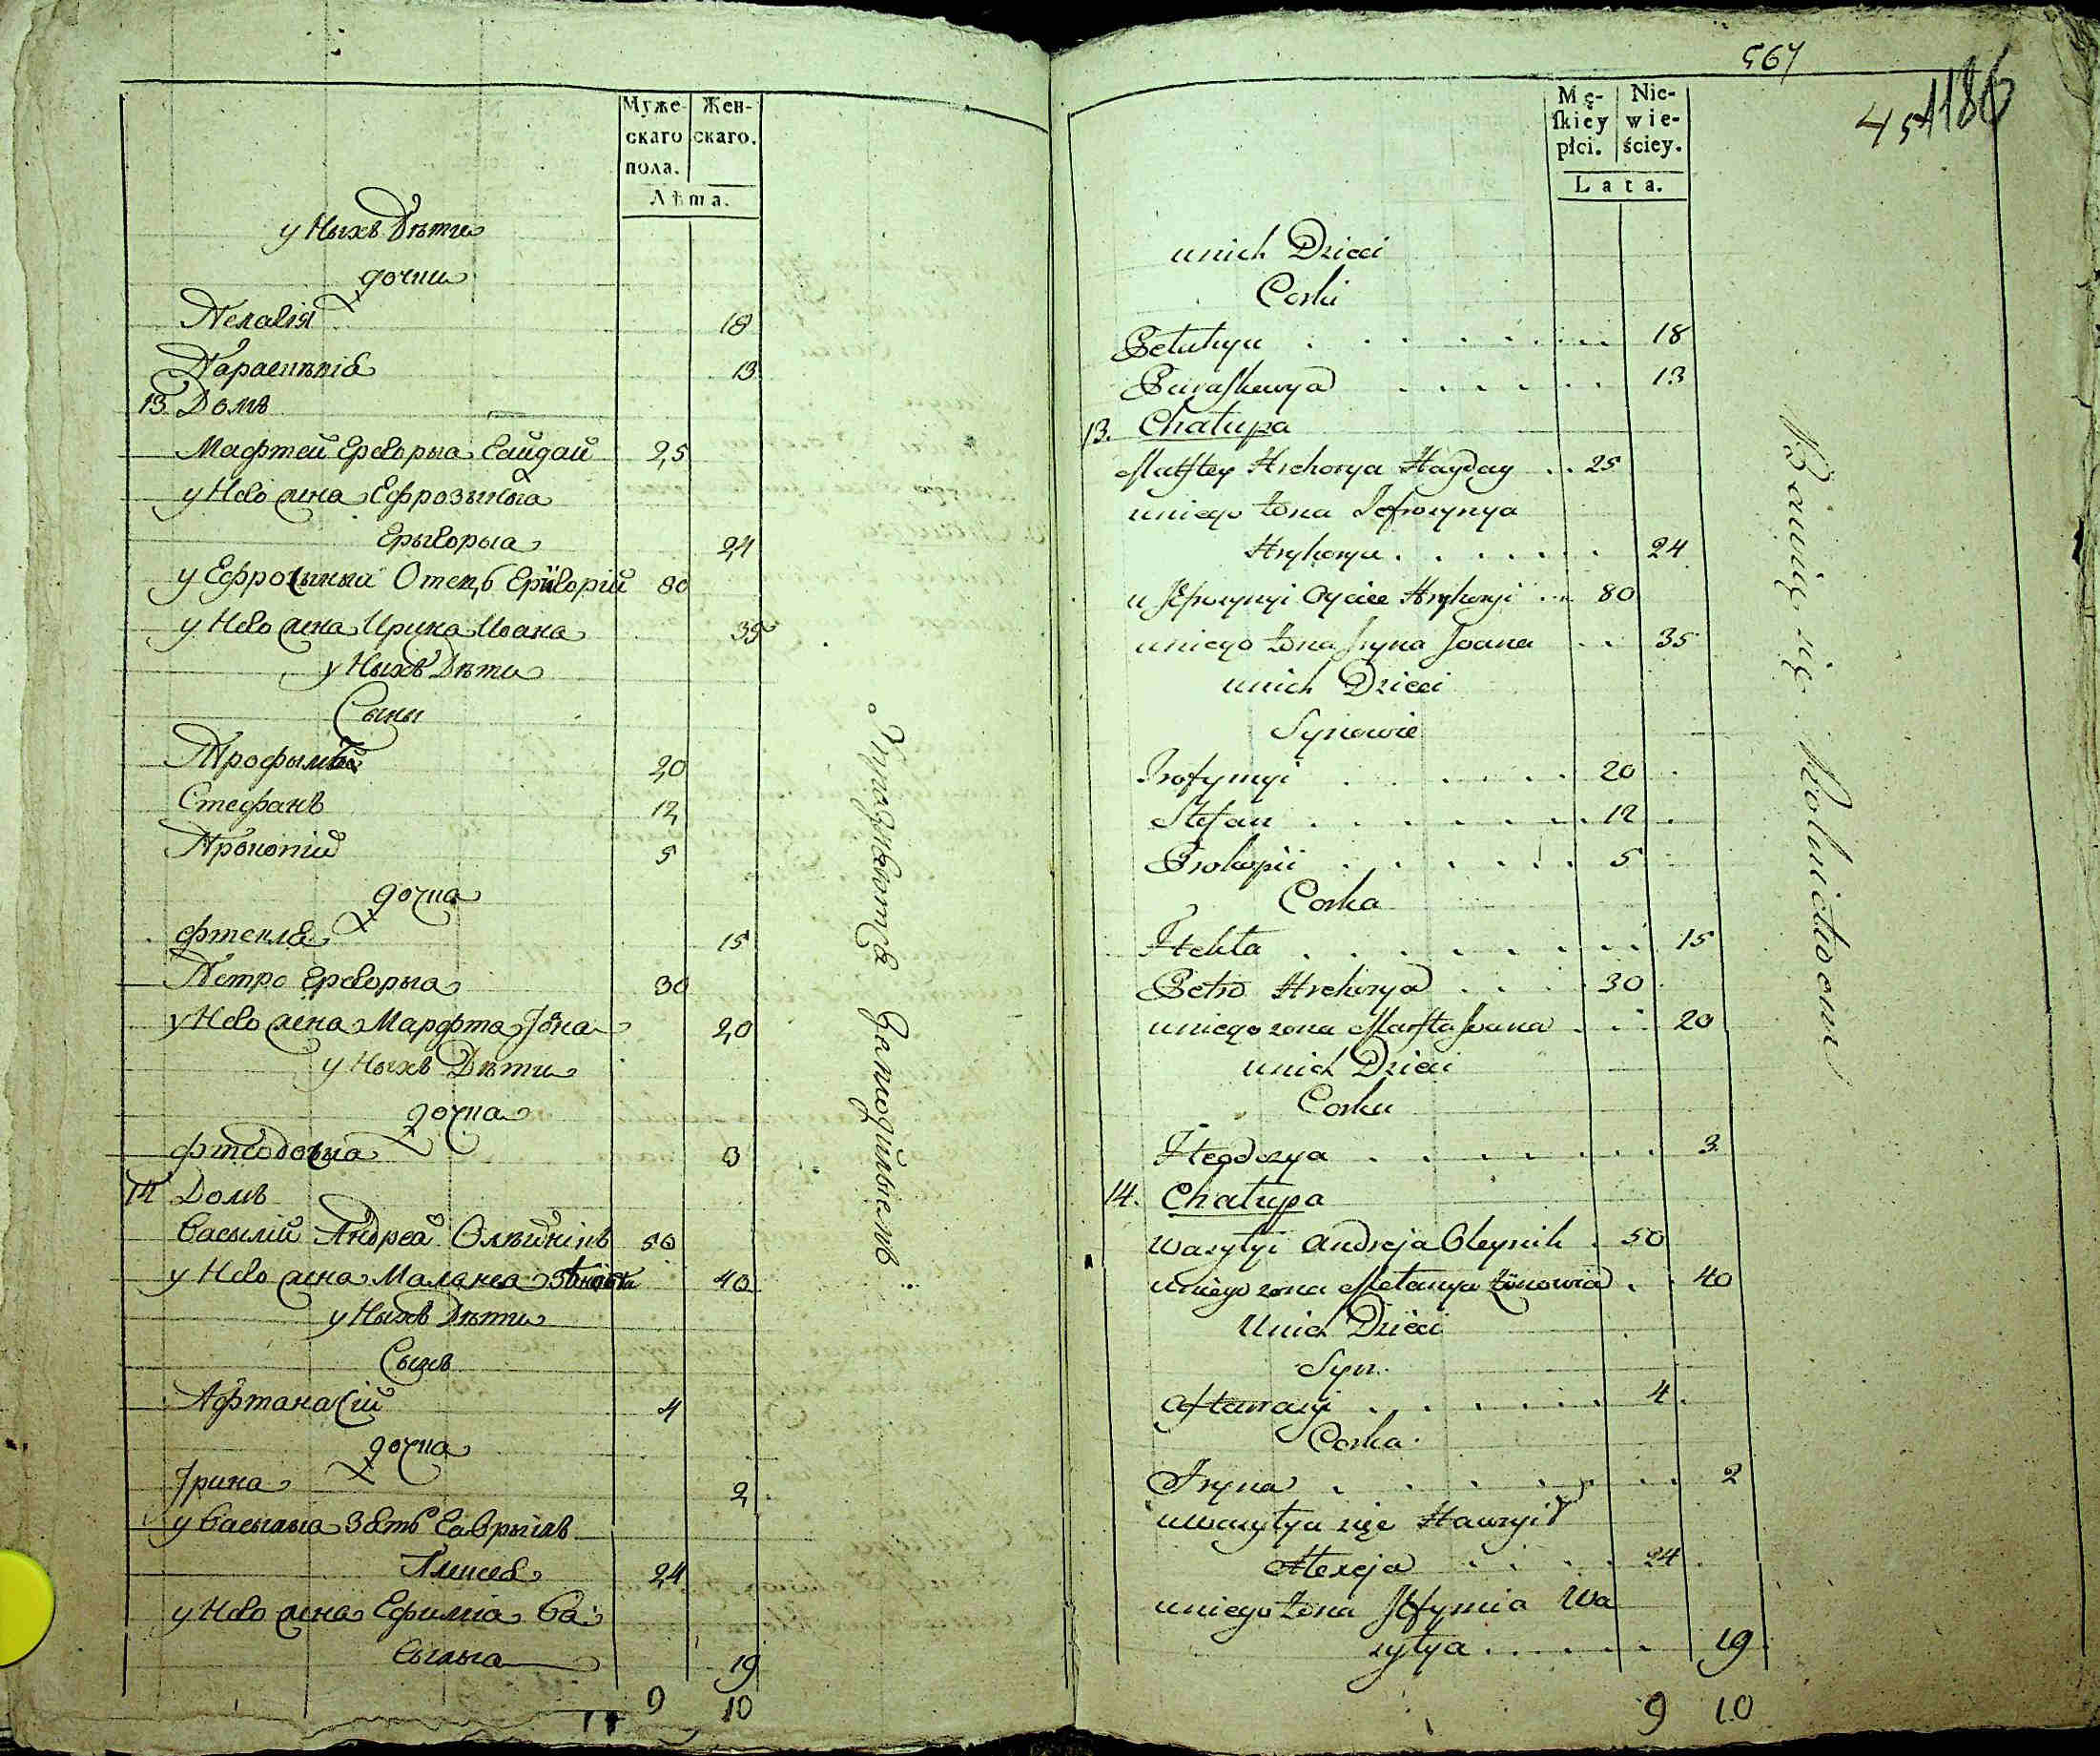 Муже-
скаго
пола.
Жен-
скаго.
Лѣта.
у Ныхъ Дѣти
дочки
Пелагія 18
Параскѣвія 13
13 Домъ
Мафтей Ерегорыа Гайдай 25
у Него жена Ефрозыныа
Грыгорыа 24
у Ефросыныи Отецъ Григорій 80
у Него жена Ирина Ивана 35
у Ныхъ Дѣти
Сыны
Трофымъ 20
Стефанъ 12
Прокопій 5
дочка
Фтекла 15
Петро Грегорыа 30
у Него жена Марфта Іѡана 20
у Ныхъ Дѣти
дочка
Фтеодосиа 3
14 Домъ
Васылій Андрея Олѣйникъ 50
у Него жена Маланка 40
у Ныхъ Дѣти
Сынъ
Афтанасій 4
дочка
Ірина 2
у Васылыа Зять Гаврыілъ
Алексея 24
у Него жена Ефиміа Ва
сылыа 19
9 10
Упраднѣются
567
451186
Mę-
skiey
płci.
Nie-
wie-
ściey.
Lata.
u nich Dzieci
Corki
Pelahya 18
Paraskewya 13
13. Chałupa
Mafftey Hrehorya Hayday 25
u niego żona Jefrozynya
Hryhorya 24
u Jefrozynyi Oyciec Hryhoryi 80
u niego żona Jryna Joana 35
u nich Dzieci
Synowie
Trofymyi 20
Stefan 12
Prokopii 5
Corka
Ftekła 15
Petro Hrehorya 30
u niego żona Marfta Joana 20
u nich Dzieci
Corka
Fteodozya 3
14. Chałupa
Wasylyi Andreja Oleynik 50
u niego żona Mełanya Zinowia 40
U nich Dzieci
Syn.
Aftanasyi 4
Corka
Jryna 2
u Wasylya zięć Hawryił
Alexeja 24
u niego żona Jefymia Wa
sylya 19
9 10
Bawią się Rolnictwem